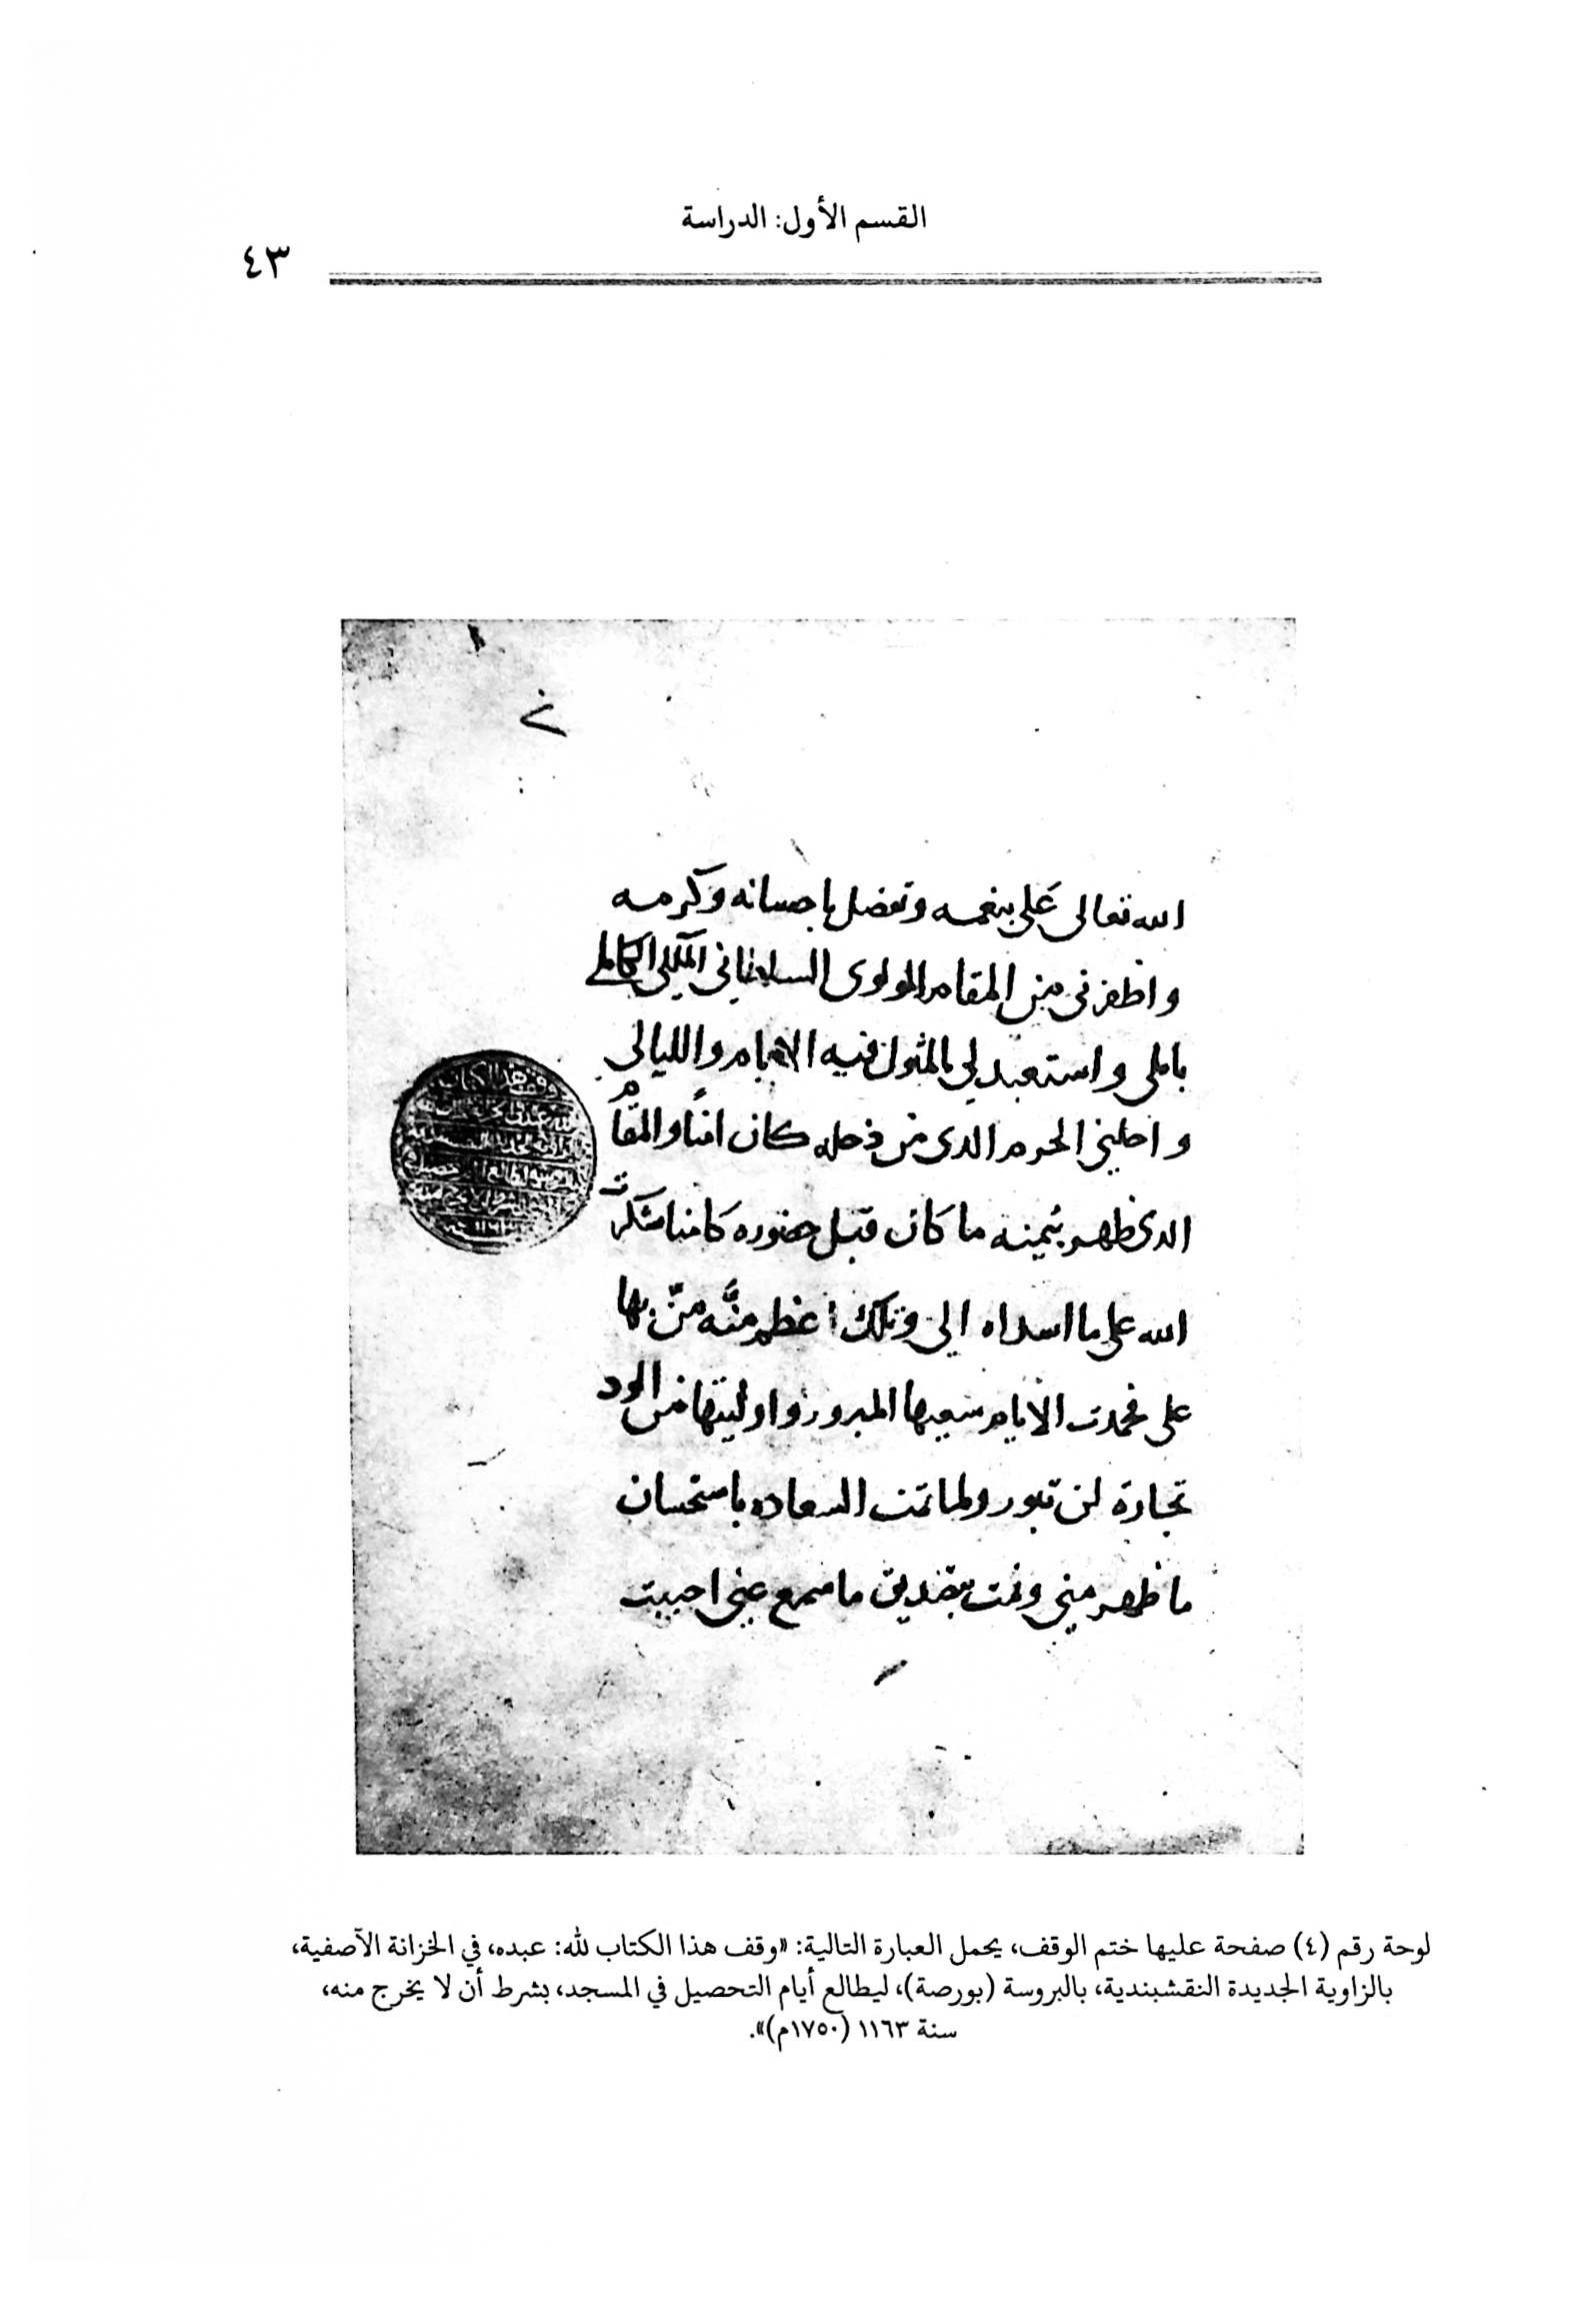 القسم الأول: الدراسة
٤٣
الله تعالى على بنعمه وتفضل باحسانه وكرمه
واظفرنى من المقام المولوى السلطانى الملكى الكاملى
باملى واستعبد لى بالمثول فيه الايام والليالى
واحلنى الحرم الدى من دخله كان امنًا والمقام
الدى ظهر بيمنه ما كان قبل حضوره كامنا شكرت
الله على ما اسداه الى وتلك اعظم منَّه منّ بها
على فحمدت الايام سعيها المبرور واوليتها من الود
تجارة لن تبور ولما تمت السعاده باستحسان
ما ظهر منى ونمت بتصديق ما سمع عنى احببت
وقف هذا الكتاب
لوحة رقم (٤) صفحة عليها ختم الوقف، يحمل العبارة التالية: «وقف هذا الكتاب لله: عبده، في الخزانة الآصفية،
بالزاوية الجديدة النقشبندية، بالبروسة (بورصة)، ليطالع أيام التحصيل في المسجد، بشرط أن لا يخرج منه،
سنة ١١٦٣ (١٧٥٠م)».